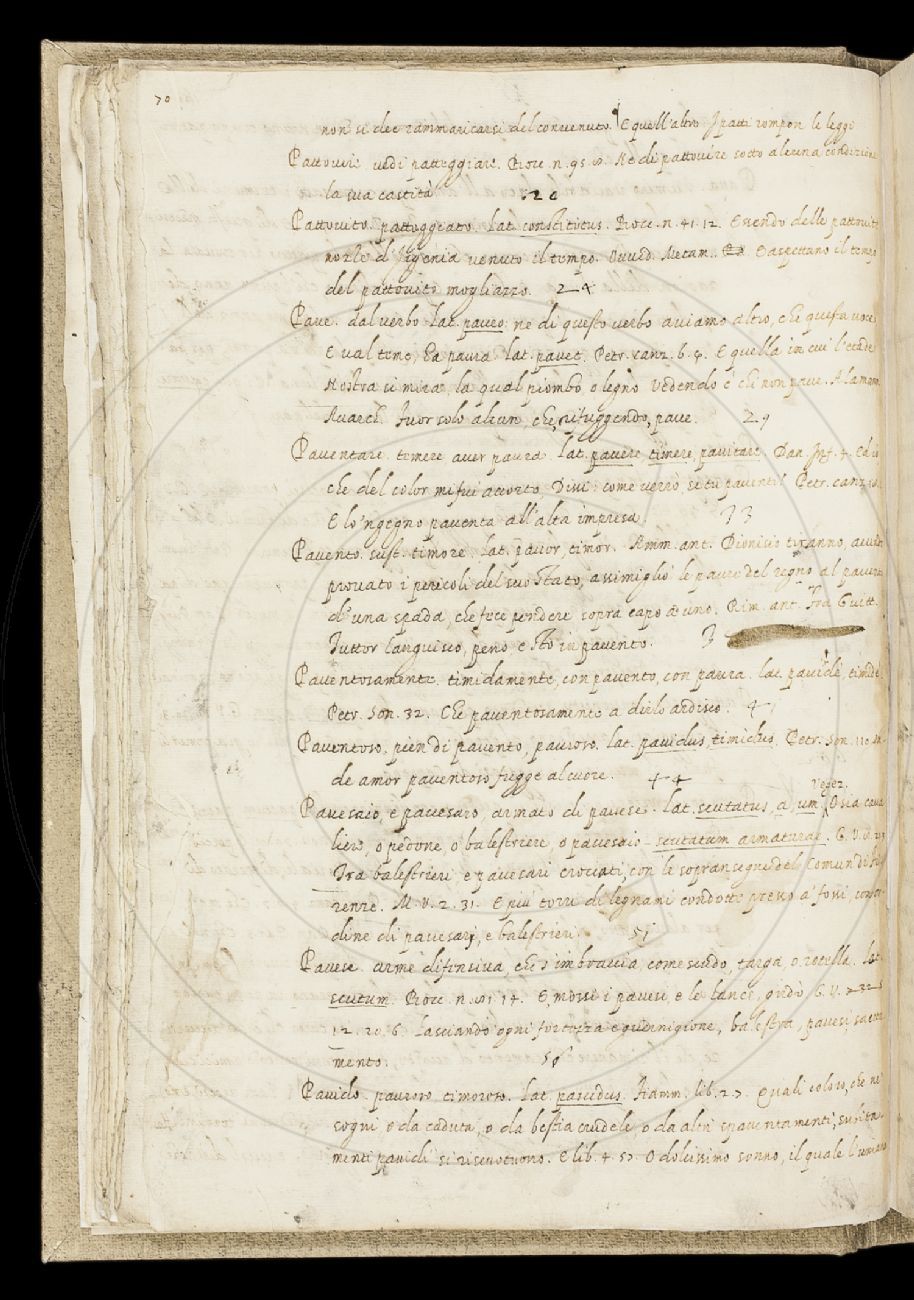 70
non si dee rammaricarsi del convenuto. E quell'altro I patti rompon le leggi
Pattovire vedi patteggiare. Bocc. n. 95. Me di pattovire sotto alcuna condizione
la sua castità 20
Pattovito. patteggiato. lat. constitutus. Bocc. n. 41. 12. Essendo delle pattovite
nozze d'Ifigenia venuto il tempo. Ovvid. Metam. E aspettano il tempo
del pattovito mogliazzo. 24
Pave. dal verbo lat. paveo: ne di questo verbo aviamo altro, che questa voce
E val teme, ha paura lat. pavet. Petr. canz. 6. E quella in cui l'etade
Nostra si mira, la qual piombo, o legno Vedendo è chi non pave. Alam
fuor solo alcun, che, rifuggendo, pave. 29
Paventare. temere aver paura. lat. pavere timere, pavitare. Dan. Inf. 4. Ed io
che del color mi fui accorto, Dissi: come verrò, se tu paventi? Petr. canz.
E lo 'ngegno paventa all'alta impresa. 33
Pavento. sust. timore. lat. pavor, timor. Amm. ant. Dionisio tiranno, avendo
provato i pericoli del suo stato, assimigliò le paure del regno al pavento
d'una spada, che fece pendere sopra capo ad uno. Rim. ant. Fra Guitt.
Tuttor languisco, peno e sto in pavento.
Paventosamente. timidamente, con pavento, con paura. lat. pavide, timide
Petr. Son. 32. Che paventosamente a dirlo ardisco. 41
Paventoso. pien di pavento, pauroso. lat. pavidus, timidus. Petr. Son. 110.
de amor paventoso fugge al cuore. 44
Vegez.
Pavesaio, e pavesaro, armato di pavese. lat. scutatus, a um. O sia cava
liere, o pedone, o balestriere, o pavesaio scutatum armaturae. G. V.
Tra balestrieri, e pavesari crociati, con le sopransegne del Comun di Fi
renze. M. V. 2. 31. E più torri di legnami condotte presso a' fossi, con
dine di pavesari, e balestrieri. 51
Pavese. arme difensiva, che s'imbraccia, come scudo, targa, o rotella. lat.
scutum. Bocc. n. 14. E, mossi i pavesi, e le lance, gridò G. V.
12. 20. 6. lasciando ogni fortezza e guernigione, balestra, pavesi, saetta
mento. 56
Pavido. pauroso. timoroso. lat. pavidus. Fiamm. lib. 27. Quali coloro, che ne'
sogni o da caduta, o da bestia crudele o da altri spaventamenti, subita
menti pavidi si riscuotono. E lib. 4. 57. O dolcissimo sonno, il quale